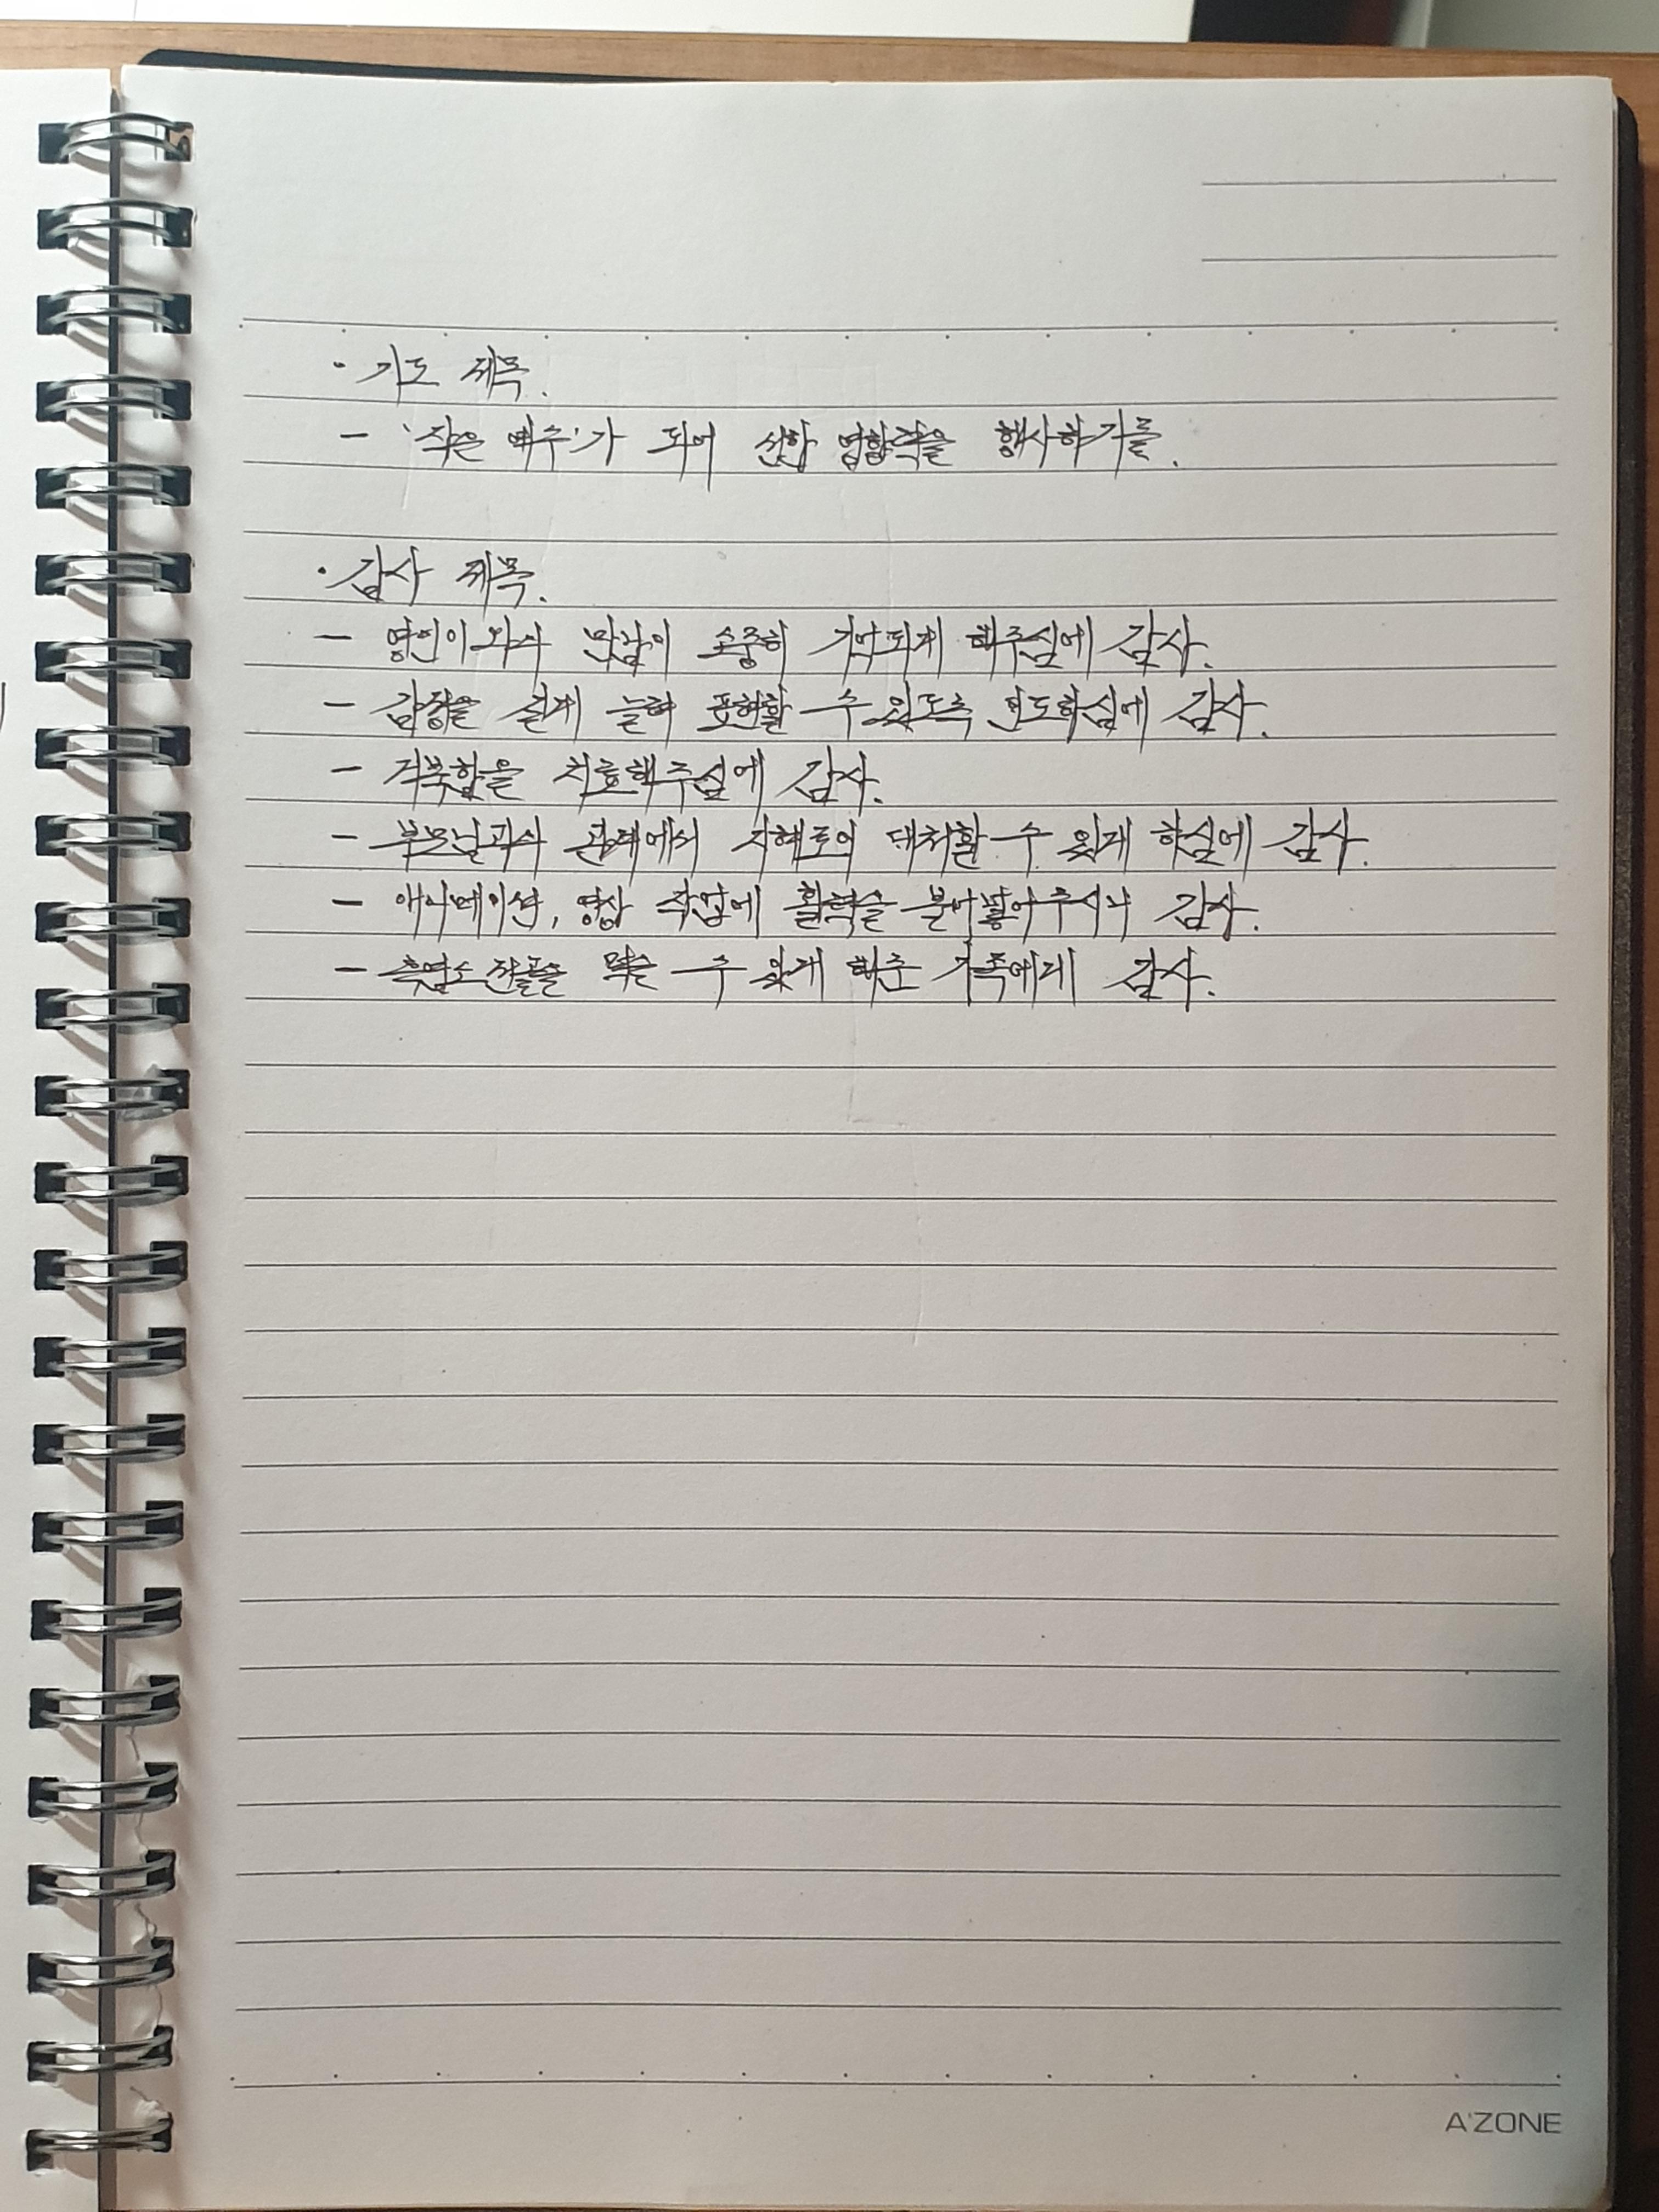 · 기도 제목.
- '작은 예수'가 되어 선한 영향력을 행사하기를.
· 감사 제목.
- 영인이와의 만남이 소중히 기억되게 해주심에 감사.
- 감정을 쉽게 표현할 수 있도록 인도하심에 감사.
- 거북함을 치료해주심에 감사.
- 부모님과의 관계에서 지혜로이 대처할 수 있게 하심에 감사.
- 애니메이션, 영상 작업에 활력을 불어넣어주시니 감사.
- 흑염소전골을 먹을 수 있게 해준 가족에게 감사.
A'ZONE